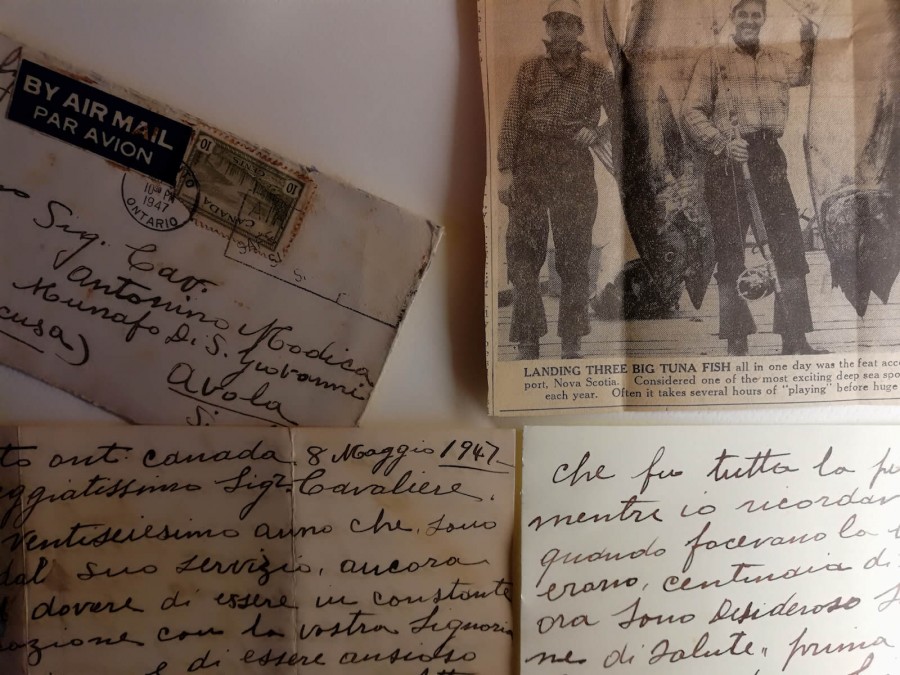 BY AIR MAIL
PAR AVION
10 CANADA 10
CENTS
10 PM
1947
ONTARIO
Sig. Cav.
Antonino Modica
Munafo Di S. Giovanni
Avola
cusa)
S.
LANDING THREE BIG TUNA FISH all in one day was the feat
port, Nova Scotia. Considered one of the most exciting deep sea
each year. Often it takes several hours of "playing" before huge
canada 8 Maggio 1947
Sigr. Cavaliere.
ventiseiesimo anno che sono
dal suo servizio, ancora
dovere di essere in constante
con la vostra Signoria
e di essere ansioso
che fu tutta la
mentre io
quando facevano la
erano, centinaia di
ora sono desideroso
ne di salute" prima